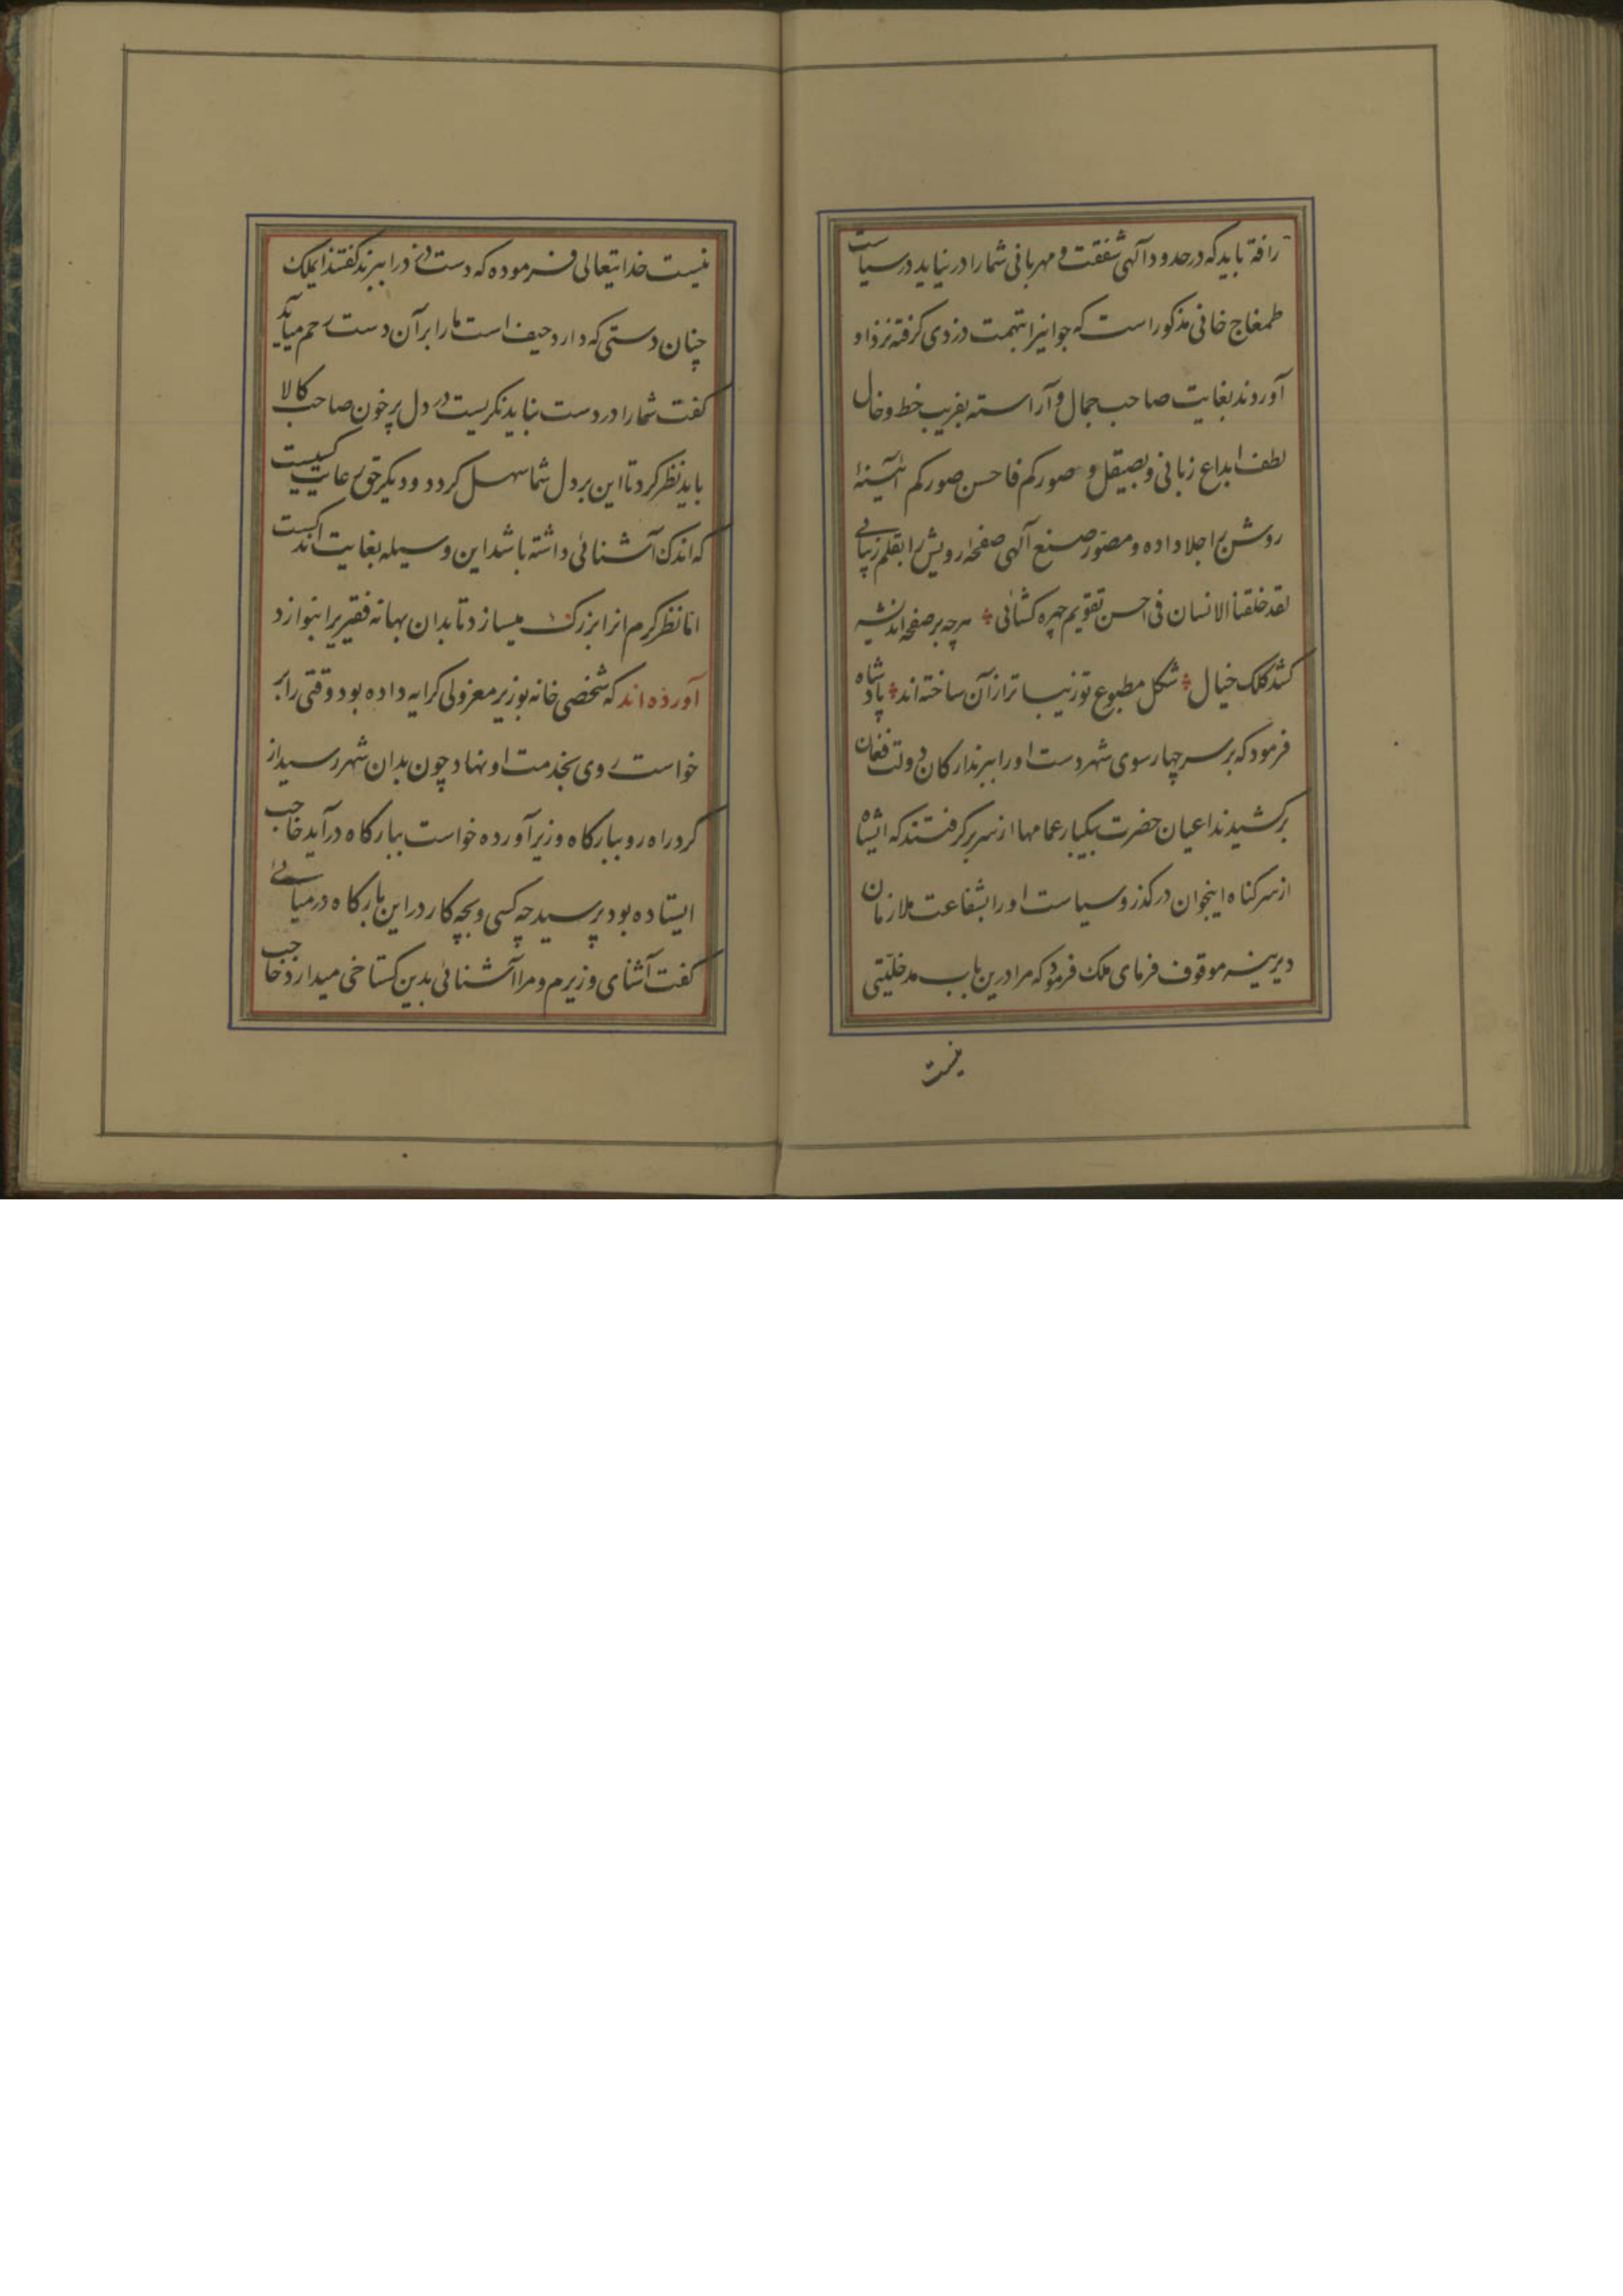 رافة باید که در حدود آلهی شفقت و مهربانی شما را در نیابد در سیاست
طمغاج خانی مذکور است که جوانیرا بتهمت دزدی گرفته نزد او
آوردند بغایت صاحب جمال و آراسته بفریب خط و خال
لطف ابداع زبانی و بصیقل و صورکم فاحسن صورکم آئینهٔ
روشن را جلا داده و مصور صنع آلهی صفحهٔ رویش را بقلم زیبائی
لقد خلقنا الانسان فی احسن تقویم چهره کشائی هر چه بر صفحه اندیشه
کشد کلک خیال شکل مطبوع تو زیبا تر از آن ساخته اند پادشاه
فرمود که بر سر چهار سوی شهر دست او را ببرند ارکان دولت فغان
برکشیدند اعیان حضرت بیکبار عمامها از سر بر گرفتند که ایشاه
از سر کناه اینجوان در کذر و سیاست او را بشفاعت ملازمان
دیرینه موقوف فرمای ملک فرمود که مرا درین باب مدخلیتی
نیست
نیست خدایتعالی فرموده که دست دزد را ببرند کفتند ایملک
چنان دستی که دارد حیف است ما را بر آن دست رحم میاید
کفت شما را در دست نباید نکریست در دل پر خون صاحب کالا
باید نظر کرد تا این بر دل شما سهل کردد و دیکر حق رعایت کسیست
که اندک آشنائی داشته باشد این وسیله بغایت اندکست
اما نظر کرم انرا بزرک میسازد تا بدان بهانه فقیریرا بنوازد
آورده اند که شخصی خانه بوزیر معزولی کرایه داده بود وقتی را بر
خواست روی بخدمت او نهاد چون بدان شهر رسید از
کرد راه رو ببارکاه وزیر آورده خواست ببارکاه در آید حاجب
ایستاده بود پرسید چه کسی و بچه کار در این بارکاه در میائی
کفت آشنای وزیرم و مرا آشنائی بدین کستاخی میدارد حاجب